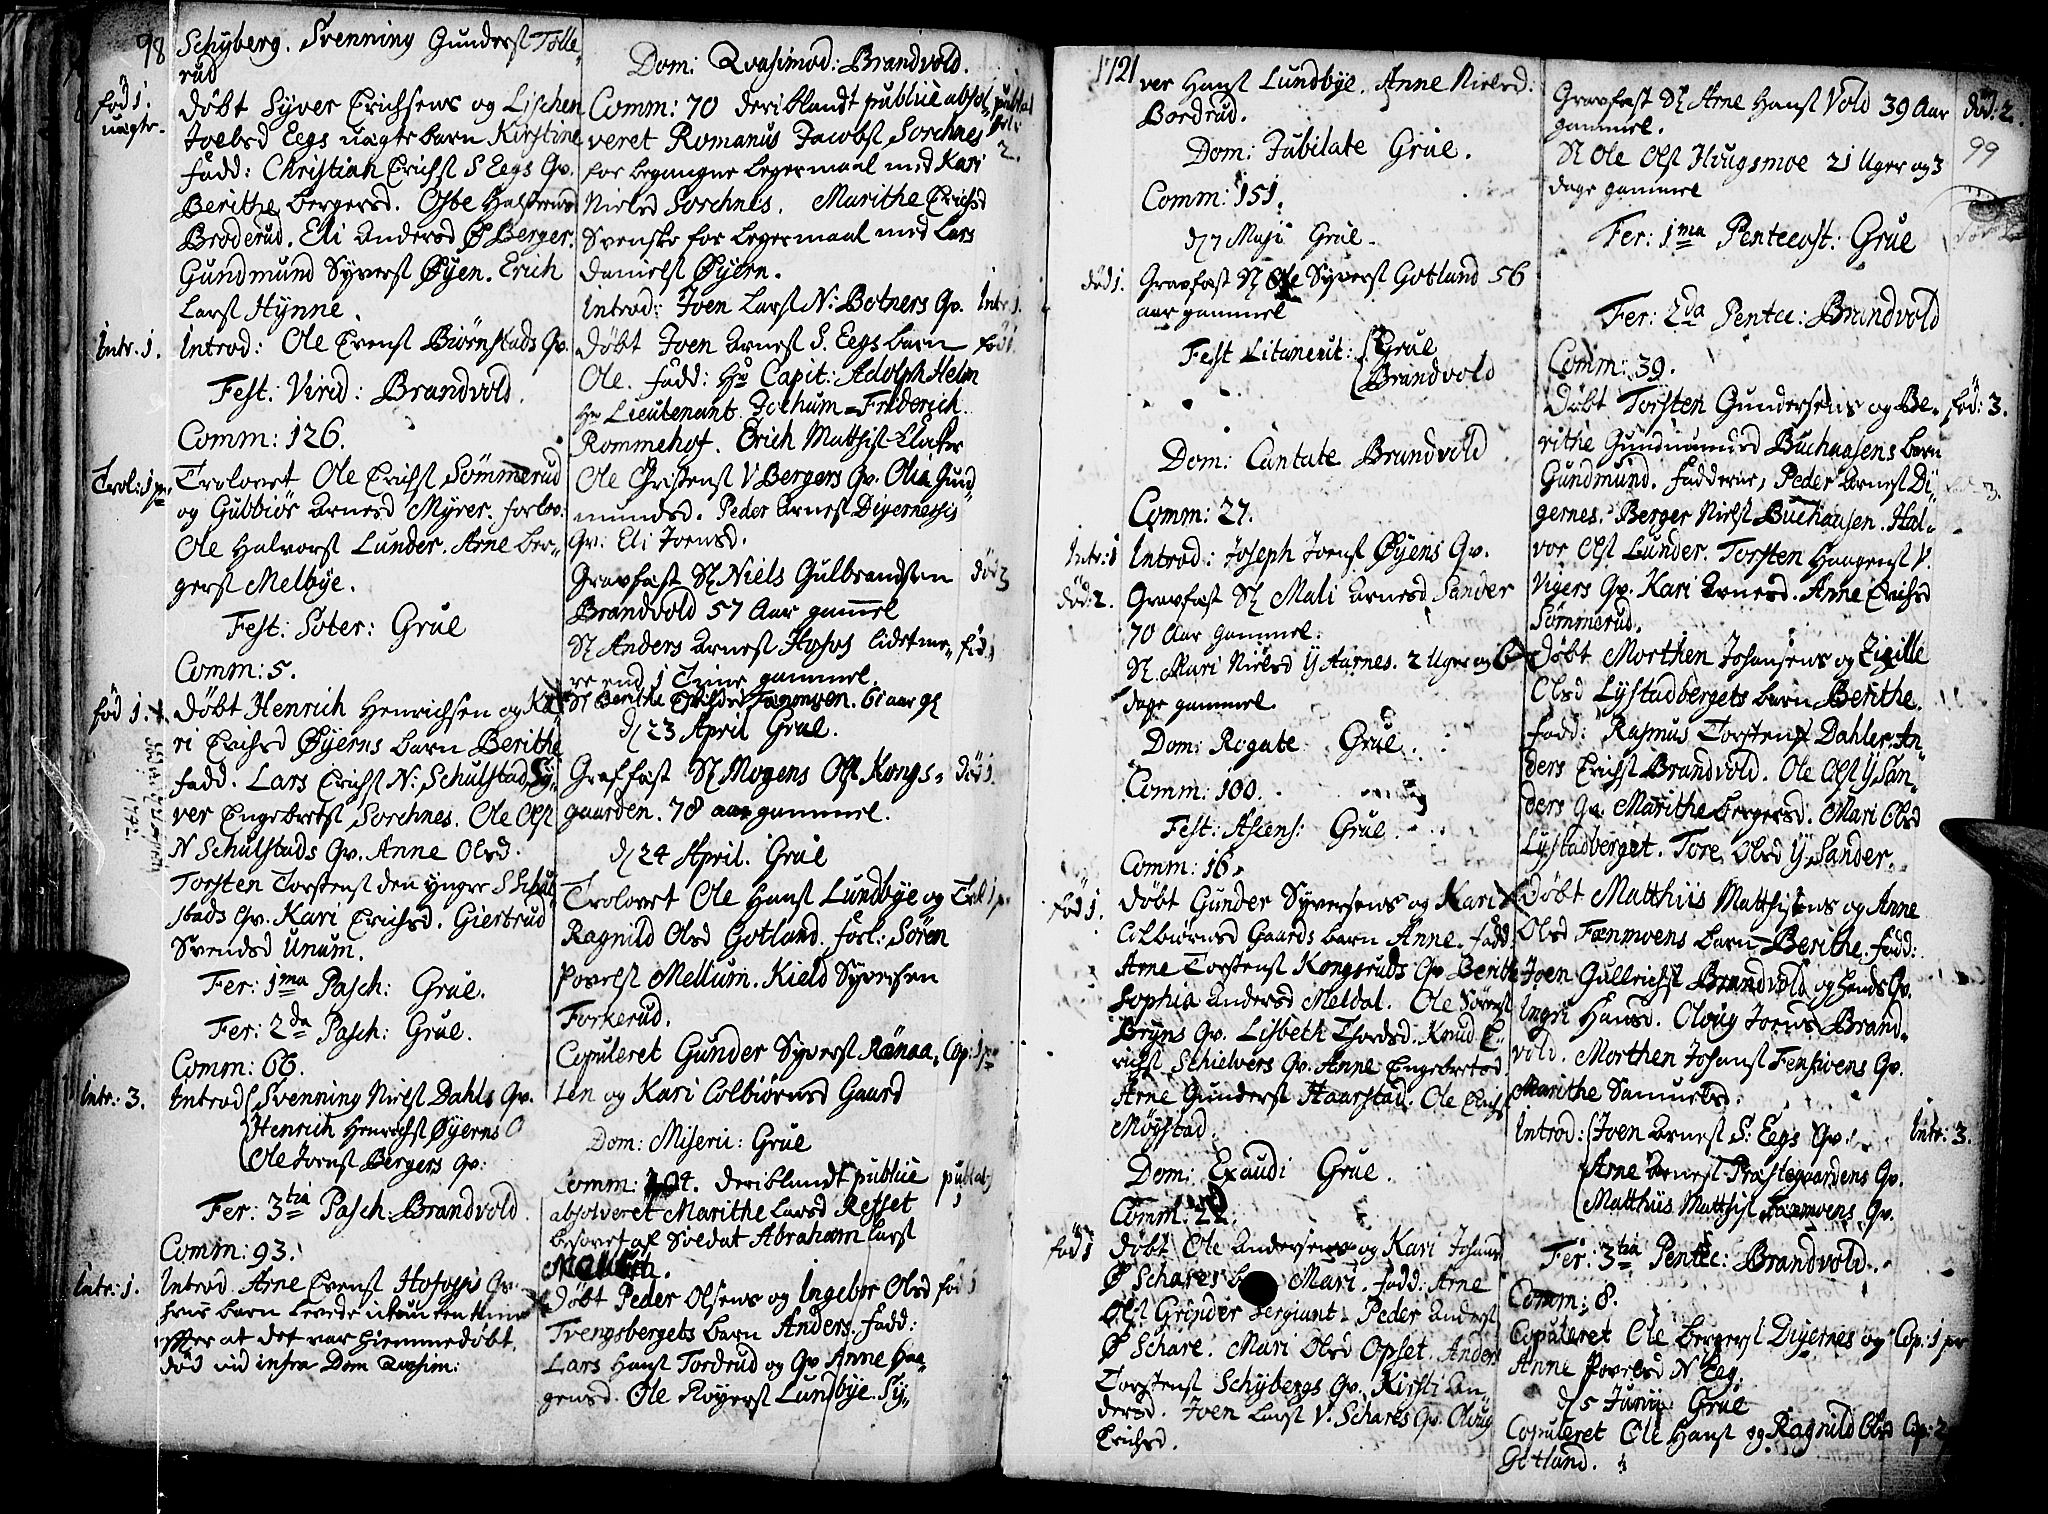 98
Schÿberg. Svenning Gunders⟨en⟩ Tolle⸗
rud
fød 1.
uægte.
døbt Syver Erichsens og Lischen
Joelsd Eegs uægte barn Kirstine
fadd: Christian Erichs⟨en⟩ S Eegs Qv.
Berithe Bergersd. Halstensd
Broderud. Eli Andersd Ø Berger.
Gundmund Syvers⟨en⟩ Øÿen. Erich
Lars⟨en⟩ Hÿnne.
Intr. 1. Introd: Ole Evens⟨en⟩ Biørnstads Qv.
Fest: Virid: Brandvold.
Comm: 126.
Trol: 1 pr Trolovet Ole Erichs⟨en⟩ Sömmerud
og Gubbiör Arnesd Mÿrer. forlov:
Ole Halvors⟨en⟩ Lunder. Arne Ber⸗
gers⟨en⟩ Melbye.
Fest: Soter: Grue
Comm: 5.
fød 1. døbt Henrich Henrichsen og Ka⸗
ri Erichsd Øÿerns barn Berithe
fadd. Lars Erichs⟨en⟩ N: Schulstad. Sÿ⸗
ver Engebrets⟨en⟩ Sorchnes. Ole Ols⟨en⟩
N Schulstads Qv. Anne Olsd.
Torsten Torstens⟨en⟩ den yngre S Schul⸗
stads Qv. Kari Erichsd. Giertrud
Svendsd Unum.
Fer: 1ma Pasch: Grue.
Fer: 2da Pasch: Grue.
Comm: 66.
Intr: 3. Introd Svenning Niels⟨en⟩ Dahls Qv.
Henrich Henrichs⟨en⟩ Øÿerns Q
Ole Joens⟨en⟩ Bergers Qv:
Fer: 3tia Pasch: Brandvold.
Comm: 93.
Intr: 1. Introd Arne Evens⟨en⟩ Hofoss Qv.
hvis barn levede ickun en time
effter at det var hiemmedøbt.
død vid infra Dom Qvasim:
Dom: Qvasimod: Brandvold.
Comm: 70 deriblandt publicè absol⸗
veret Romanus Jacobs⟨en⟩ Sorchnes
for begangne legermaal med Kari
Nielsd Sorchnes. Marithe Erichsd
Svenske for legermaal med Lars
Daniels⟨en⟩ Øÿern.
Introd: Joen Lars⟨en⟩ N: Botners Qv. Intr. 1.
døbt Joen Arnes⟨en⟩ S. Eegs barn fød 1
Ole. fadd: Hr Capit: Adolph Helm
Hr Lieutenant Jochum⸗Friderich
Rommehof. Erich Matthis⟨en⟩ Klocker
Ole Christens⟨en⟩ V Bergers Qv. Olia Gud
mundsd. Peder Arnes⟨en⟩ Digernessis
Qv: Eli Joensd.
Gravfæst Sl Niels Gulbrandsen død 3
Brandvold 57 Aar gam̅el
Sl Anders Arnes⟨en⟩ Hofos lidet me⸗
re end 1 Time gammel.
Sl Berithe Fænmoen. 61 aar gl
d 23 April Grue.
Graffæst Sl Mogens Ols⟨en⟩ Kongs⸗ død 1.
gaarden. 78 aar gammel.
d 24 April. Grue
Trolovet Ole Hans⟨en⟩ Lundbye og Trol 1 p.
Ragnild Olsd Gotland. forl: Søren
Povels⟨en⟩ Mellum. Kield Syversen
Forkerud.
Copuleret Gunder Syvers⟨en⟩ Rønaa⸗ Cop: 1 pr
sen og Kari Colbiørnsd Gaard
Dom: Miseric: Grue
Comm: deriblandt publicè
absolveret Marithe Larsd Refset
besovet af Soldat Abraham Lars⟨en⟩
døbt Peder Olsens og Ingebor Olsd fød 1
Tvengsbergets barn Anders. fadd:
Lars Hans⟨en⟩ Tordrud og Qv Anne Haa⸗
gensd. Ole Røyers⟨en⟩ Lundbye. Sÿ⸗
1721
ver Hans⟨en⟩ Lundbÿe. Anne Nielsd.
Bordrud.
Dom: Jubilate Grue.
Comm: 151.
d 7 Maji Grue.
død 1. Gravfæst Sl Ole Syvers⟨en⟩ Gotland 56
aar gammel
Fest Litaneut: Grue
Brandvold
Dom: Cantate Brandvold
Comm: 27.
Intr: 1 Introd: Joseph Joens⟨en⟩ Øÿens Qv.
død: 2. Gravfæst Sl Mali Arnesd Sander
70 Aar gammel.
Sl Mari Nielsd Ÿ Aarnes. 2 Uger og 6
dage gammel.
Dom: Rogate Grue.
Comm: 100.
Fest: Ascens: Grue.
Comm: 16.
fød 1. døbt Gunder Syversens og Kari
Colbiørnsd Gaards barn Anne. fadd
Arne Torstens⟨en⟩ Kongsruds Qv Berithe
Sophia Andersd Meldal. Ole Sørens⟨en⟩
Brÿns Qv. Lisbeth Thordsd. Knud E⸗
richs⟨en⟩ Schielvers Qv. Anne Engebretsd.
Arne Gunders⟨en⟩ Haarstad. Ole Erichs⟨en⟩
Møÿstad.
Dom: Exaudi Grue.
Comm: 22.
fød 1 døbt Ole Andersens og Kari Johans
Ø Schares Mari. fadd: Arne
Ols⟨en⟩ Grinder Sergiant. Peder Anders⟨en⟩
Ø Schare. Mari Olsd Opset. Anders
Torstens⟨en⟩ Schÿbergs Qv. Kirsti An⸗
dersd. Joen Lars⟨en⟩ V. Schares Qv. Oloug
Erichsd.
Gravfæst Sl Arne Hans⟨en⟩ Vold 39 Aar død: 2.
gammel.
99
Sl Ole Ols⟨en⟩ Hougsmoe 21 Uger og 3
dage gammel
Fer: 1ma Pentecost: Grue
Fer: 2da Pentec: Brandvold
Comm: 39.
døbt Torsten Gundersens og Be⸗ fød: 3.
rithe Gundmundsd Buchaasens barn
Gundmund. fadderne, Peder Arnes⟨en⟩ Di⸗
gernes. Berger Niels⟨en⟩ Buchausen. Hal⸗
vor Ols⟨en⟩ Lunder. Torsten Haagens⟨en⟩ V.
Vigers Qv. Kari Arnesd. Anne Erichsd
Sömmerud.
døbt Morthen Johansens og Zizille
Olsd Lÿstadbergets barn Berithe.
fadd: Rasmus Torstens⟨en⟩ Dahler. An⸗
ders Erichs⟨en⟩ Brandvold. Ole Ols⟨en⟩ Ÿ San⸗
ders Qv. Marithe Bergersd. Mari Olsd
Lÿstadberget. Tore Olsd Ÿ Sander.
døbt Matthiis Matthisens og Anne
Olsd Fænmoens barn Berithe. fadd:
Joen Gullichs⟨en⟩ Brandvold og hends Qv.
Ingri Hansd. Oloug Joensd Brand⸗
vold. Morthen Johans⟨en⟩ Fensivens Qv.
Marithe Samuelsd.
Introd: Joen Arnes⟨en⟩ S: Eegs Qv. Intr: 3.
Arne Arnes⟨en⟩ Præstegaardens Qv.
Matthiis Matthis⟨en⟩ Fænmoens Qv.
Fer: 3tia Pentec: Brandvold.
Comm: 8.
Copuleret Ole Bergers⟨en⟩ Digernes og Cop: 1 pr
Anne Povelsd N Eeg.
d 5 Junij Grue
Copuleret Ole Hans⟨en⟩ og Ragnild Olsd Cop: 2
Gotland.